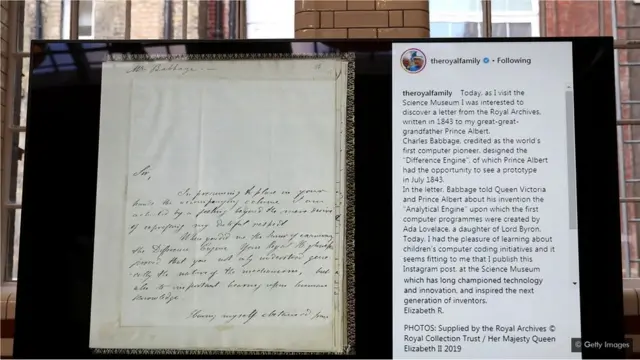 Mr Babbage
Sir,
In presuming to place in your
hands the accompanying volume I am
actuated by a feeling beyond the mere
of expressing my dutiful respect.
When you did me the honor of examining
the Difference Engine Your Royal Highness
proved that you not only understood
the nature of the mechanism, but
also its important bearing upon human
knowledge.
Having myself obtained from
theroyalfamily • Following
theroyalfamily Today, as I visit the
Science Museum I was interested to
discover a letter from the Royal Archives,
written in 1843 to my great-great-
grandfather Prince Albert.
Charles Babbage, credited as the world's
first computer pioneer, designed the
"Difference Engine", of which Prince Albert
had the opportunity to see a prototype
in July 1843.
In the letter, Babbage told Queen Victoria
and Prince Albert about his invention the
"Analytical Engine" upon which the first
computer programmes were created by
Ada Lovelace, a daughter of Lord Byron.
Today, I had the pleasure of learning about
children's computer coding initiatives and it
seems fitting to me that I publish this
Instagram post, at the Science Museum
which has long championed technology
and innovation, and inspired the next
generation of inventors.
Elizabeth R.
PHOTOS: Supplied by the Royal Archives ©
Royal Collection Trust / Her Majesty Queen
Elizabeth II 2019
© Getty Images